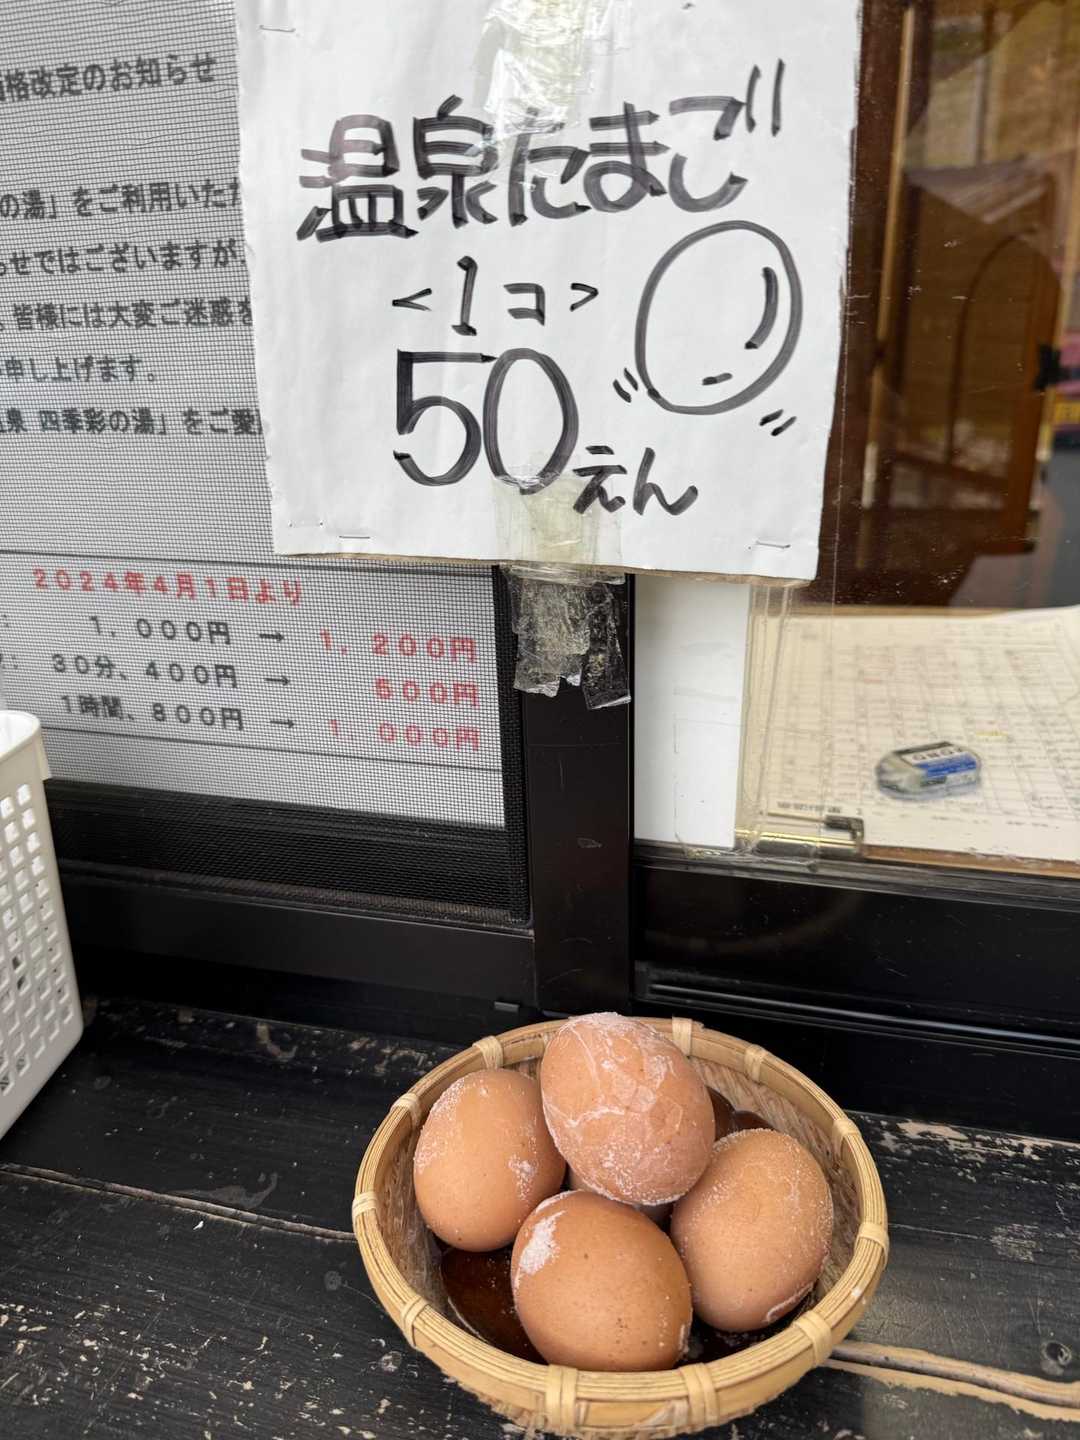 温泉たまご
<1コ>
50えん
格改定のお知らせ
の湯」をご利用いただ
らせではございますが、
皆様には大変ご迷惑を
申し上げます。
泉 四季彩の湯」をご愛
2024年4月1日より
1,000円 → 1,200円
30分、400円 → 500円
1時間、800円 → 1,000円
MONO